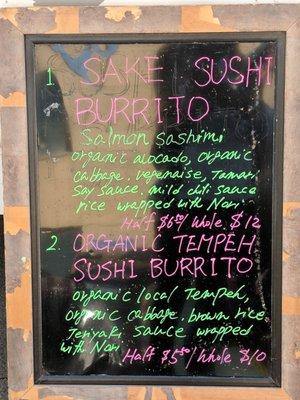 1 SAKE SUSHI
BURRITO
Salmon sashimi
organic avocado, organic
cabbage. vegenaise, Tamari
Soy Sauce. mild chili sauce
rice wrapped with Nori
Half $6.50/ Whole $12
2. ORGANIC TEMPEH
SUSHI BURRITO
organic local Tempeh,
organic cabbage. brown rice
Teriyaki sauce wrapped
with Nori
Half $5.50/ Whole $10